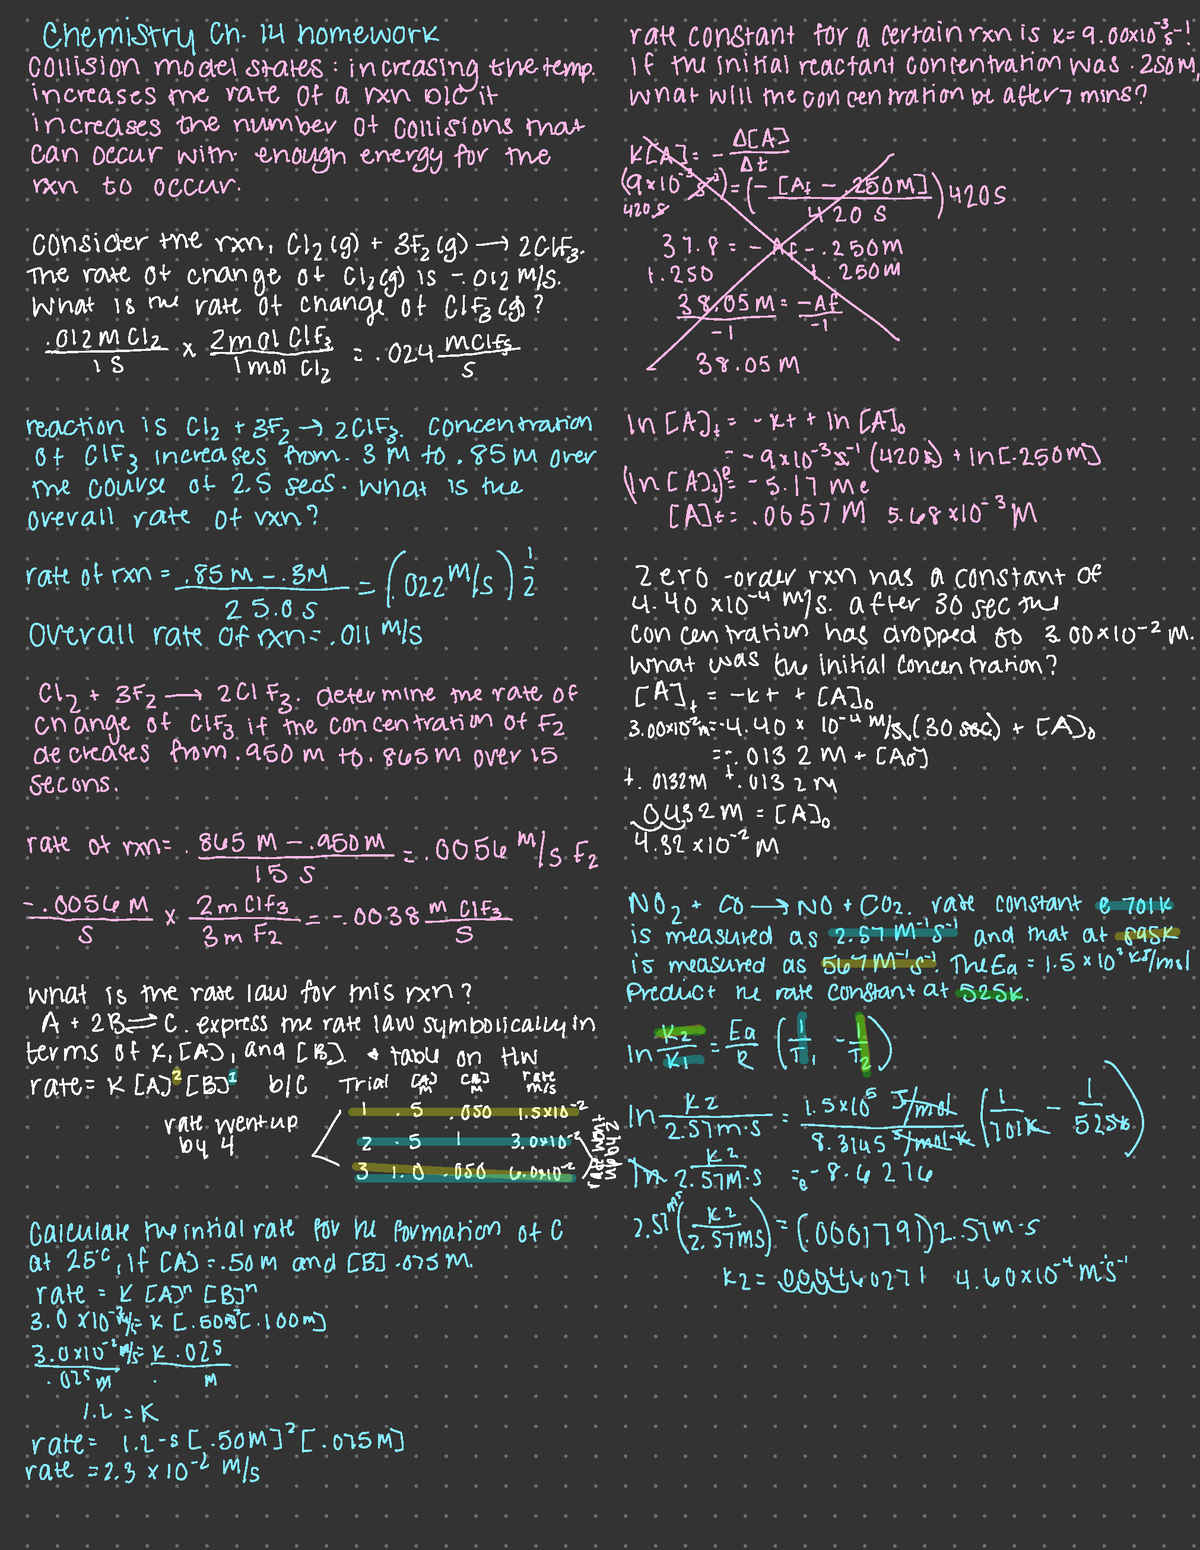 Chemistry Ch. 14 homework
collision model states: increasing the temp.
increases the rate of a rxn b/c it
increases the number of collisions that
can occur with enough energy for the
rxn to occur.
consider the rxn, Cl2(g) + 3F2(g) → 2ClF3.
The rate of change of Cl2(g) is -.012 M/s.
What is the rate of change of ClF3(g)?
.012 M Cl2 / 1 s x 2 mol ClF3 / 1 mol Cl2 = .024 M ClF3 / s
reaction is Cl2 + 3F2 → 2ClF3. Concentration
of ClF3 increases from .3 M to .85 M over
the course of 2.5 secs. What is the
overall rate of rxn?
rate of rxn = .85 M - .3M / 25.0 s = (.022 M/s) 1/2
Overall rate of rxn = .011 M/s
Cl2 + 3F2 → 2ClF3. determine the rate of
change of ClF3 if the concentration of F2
decreases from .950 M to .865 M over 15
secons.
rate of rxn = .865 M - .950M / 15 s = .0056 M/s F2
-.0056 M / s x 2m ClF3 / 3m F2 = -.0038 M ClF3 / s
what is the rate law for this rxn?
A + 2B ⇌ C. express the rate law symbolically in
terms of K, [A], and [B]. * table on HW
rate = K [A]² [B]¹ b/c Trial [A] M [B] M rate M/s
1 .5 .050 1.5x10⁻²
rate went up
by 4
2 .5 1 3.0x10⁻²
3 1.0 .050 6.0x10⁻²
Calculate the intial rate for the formation of C
at 25°C, if [A] = .50 m and [B] .075 M.
rate = K [A]ⁿ [B]ⁿ
3.0 x10⁻² M/s = K [.50m]² [.100m]
3.0x10⁻² M/s = K .025
.025 m M
1.2 = K
rate = 1.2-s [.50M]² [.075M]
rate = 2.3 x 10⁻² M/s
rate constant for a certain rxn is K= 9.00x10⁻³ s⁻¹.
If the initial reactant concentration was .250 M,
what will the concentration be after 7 mins?
K[A] = - Δ[A] / Δt
(9x10⁻³ s⁻¹) = (- [Af - .250M] / 420 s) 420s
420 s
37.8 = - Af - .250m
+.250 +.250M
38.05 M = -Af
-1 -1
38.05 M
ln [A]t = -kt + ln [A]0
= -9x10⁻³ s⁻¹ (420s) + ln[.250m]
(ln [A]t)e = -5.17 Me
[A]t = .0057 M 5.68 x10⁻³ M
Zero-order rxn has a constant of
4.40 x10⁻⁴ M/s. after 30 sec the
concentration has dropped to 3.00x10⁻² M.
What was the initial concentration?
[A]t = -kt + [A]0
3.00x10⁻² m = -4.40 x 10⁻⁴ M/s (30 sec) + [A]0
= -.0132 M + [A0]
+.0132M +.0132M
.0432M = [A]0
4.32 x10⁻² M
NO2 + CO → NO + CO2. rate constant @ 701K
is measured as 2.57 M⁻¹s⁻¹ and that at 895K
is measured as 567 M⁻¹s⁻¹. The Ea = 1.5 x 10² KJ/mol
Predict the rate constant at 525K.
ln K2 / K1 = Ea / R (1 / T1 - 1 / T2)
ln K2 / 2.57m·s = 1.5x10⁵ J/mol / 8.3145 J/mol·K (1 / 701K - 1 / 525K)
ln K2 / 2.57M·s = e -8.6276
2.57ms (K2 / 2.57ms) = (.0001791) 2.57m·s
K2 = .000460271 4.60x10⁻⁴ m⁻¹s⁻¹